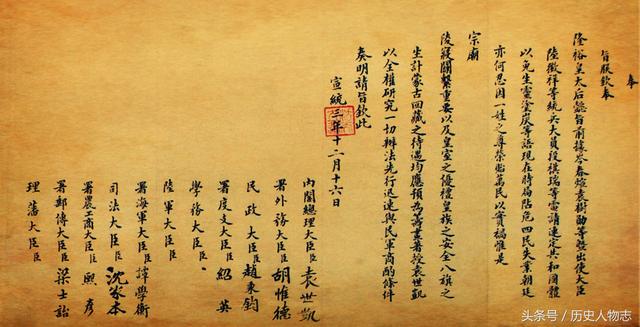 奉
旨朕欽奉
隆裕皇太后懿旨前據岑春煊袁樹勛等暨出使大臣
陸徵祥等統兵大員段祺瑞等電請速定共和國體
以免生靈塗炭等語現在時局阽危四民失業朝廷
亦何忍因一姓之尊榮貽萬民以實禍惟是
宗廟
陵寢關繫重要以及皇室之優禮皇族之安全八旗之
生計蒙古回藏之待遇均應預為籌畫著授袁世凱
以全權研究一切辦法先行迅速與民軍商酌條件
奏明請旨欽此
宣統三年十二月十六日
內閣總理大臣臣袁世凱
署外務大臣臣胡惟德
民政大臣臣趙秉鈞
署度支大臣臣紹英
學務大臣臣
陸軍大臣臣
署海軍大臣臣譚學衡
司法大臣臣沈家本
署農工商大臣臣熙彥
署郵傳大臣臣梁士詒
理藩大臣臣
头条号 / 历史人物志